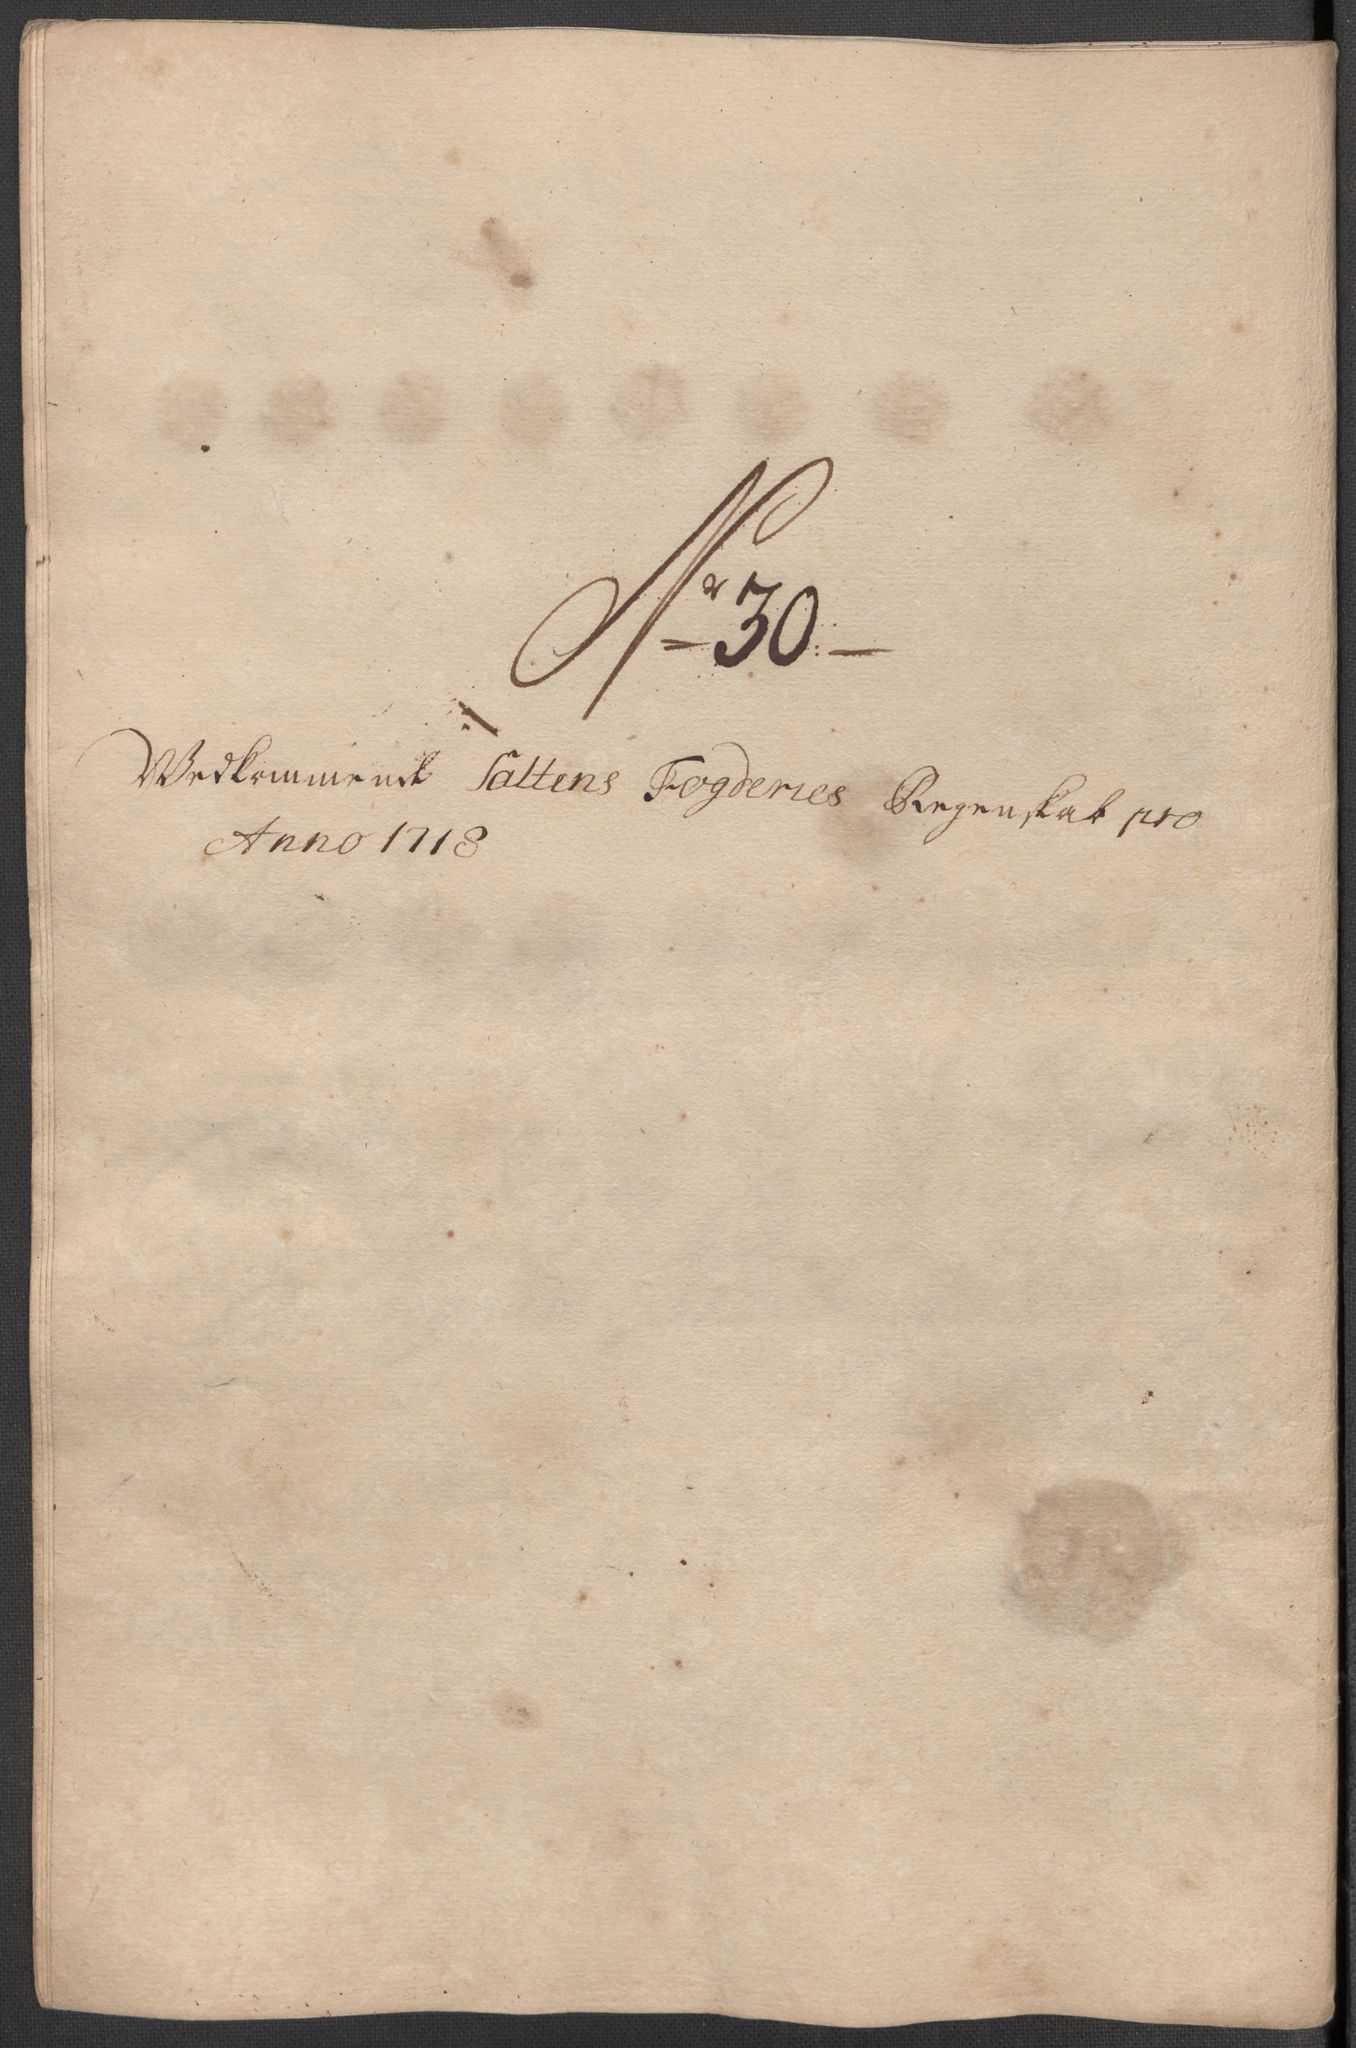 Nr 30.
Vedkommende Saltens Fogderies Regenskab pro
Anno 1718